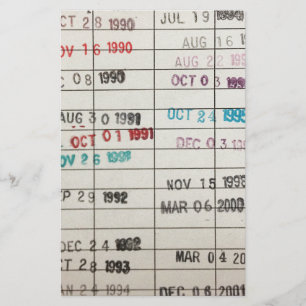 OCT 28 1990
NOV 16 1990
DEC 08 1990
AUG 30 1991
OCT 01 1991
NOV 26 1991
SEP 29 1992
DEC 24 1992
OCT 28 1993
JAN 24 1994
JUL 19
AUG 16
AUG 22
OCT 03
OCT 24 1995
DEC 03
NOV 15
MAR 06 2000
MAR 04
DEC 06 2001